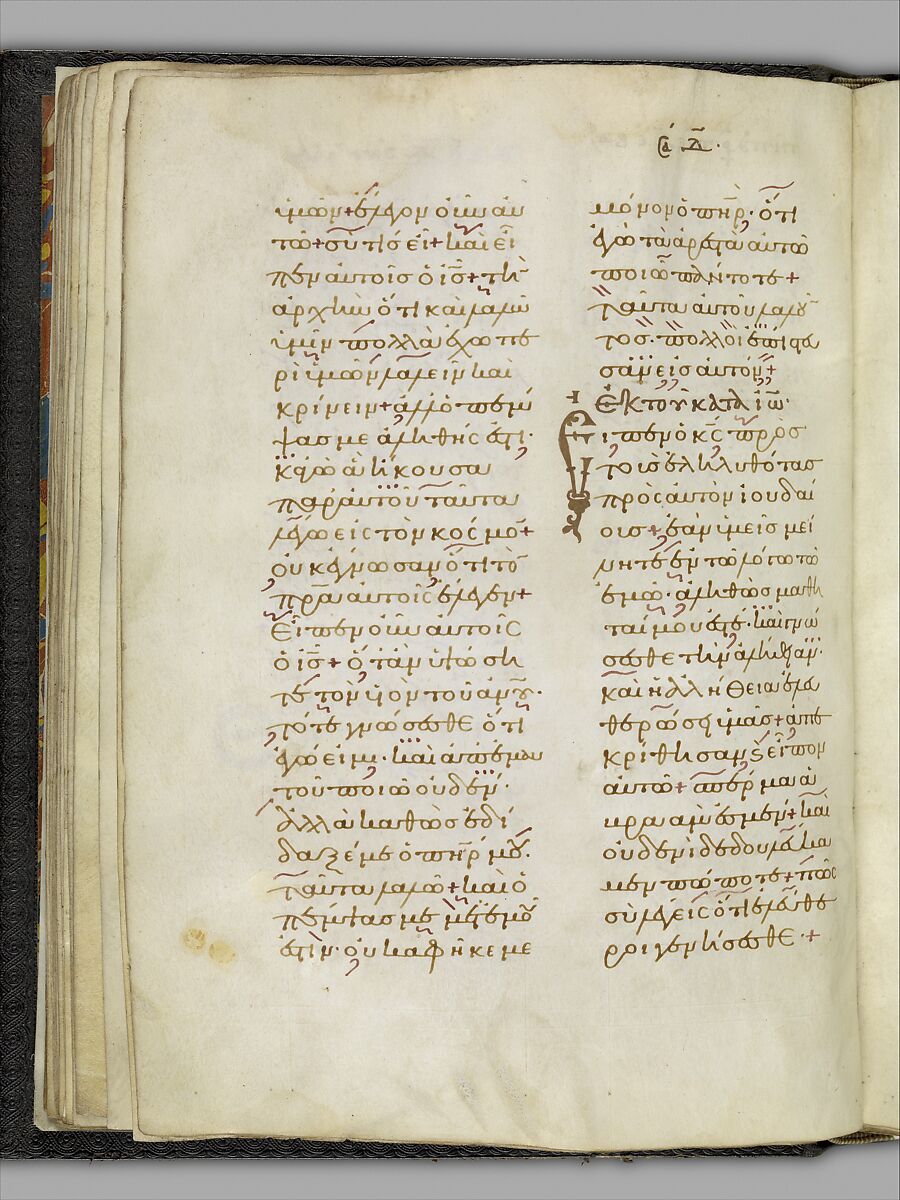 σα ζ·
ὑμῶν+ἔλεγον οὖν αὐ
τῶ+σὺ τίς εἶ+καὶ εἶ
πεν αὐτοῖς ὁ ι̅ς̅+τὴν
ἀρχὴν ὅτι καὶ λαλῶ
ὑμῖν πολλὰ ἔχω πε
ρὶ ὑμῶν λαλεῖν καὶ
κρίνειν+ἀλλ ὁ πέμ
ψας με ἀληθής ἐστι·
κἀγὼ ἃ ἤκουσα
παρ αὐτοῦ ταῦτα
λέγω εἰς τὸν κόσμον+
οὐκ ἔγνωσαν ὅτι τὸν
π̅ρ̅α̅ αὐτοῖς ἔλεγεν+
Εἶπεν οὖν αὐτοῖς
ὁ ι̅ς̅+ὅταν ὑψώση
τε τὸν υἱὸν τοῦ α̅ν̅ο̅υ̅·
τότε γνώσεσθε ὅτι
ἐγώ εἰμι· καὶ ἀπ ἐμαυ
τοῦ ποιῶ οὐδέν·
ἀλλὰ καθὼς ἐδί
δαξέ με ὁ π̅η̅ρ̅ μου·
ταῦτα λαλῶ+καὶ ὁ
πέμψας με μετ ἐμοῦ
ἐστίν· οὐκ ἀφῆκέ με
μόνον ὁ π̅η̅ρ̅· ὅτι
ἐγὼ τὰ ἀρεστὰ αὐτῶ
ποιῶ πάντοτε+
ταῦτα αὐτοῦ λαλοῦν
τος· πολλοὶ ἐπίστευ
σαν εἰς αὐτόν+
+ Ἐκ τοῦ κατὰ ιω̅·
Εἶπεν ὁ κ̅ς̅ πρὸς
τοὺς ἐληλυθότας
πρὸς αὐτὸν ἰουδαί
ους+ἐὰν ὑμεῖς μεί
νητε ἐν τῶ λόγω τῶ
ἐμῶ· ἀληθῶς μαθη
ταί μου ἐστέ· καὶ γνώ
σεσθε τὴν ἀλήθειαν·
καὶ ἡ ἀλήθεια ἐλευ
θερώσει ὑμᾶς+ἀπε
κρίθησαν καὶ εἶπον
αὐτῶ+σπέρμα ἀ
βραάμ ἐσμεν+καὶ
οὐδενὶ δεδουλεύκα
μεν πώποτε+πῶς
σὺ λέγεις ὅτι ἐλεύθε
ροι γενήσεσθε·+